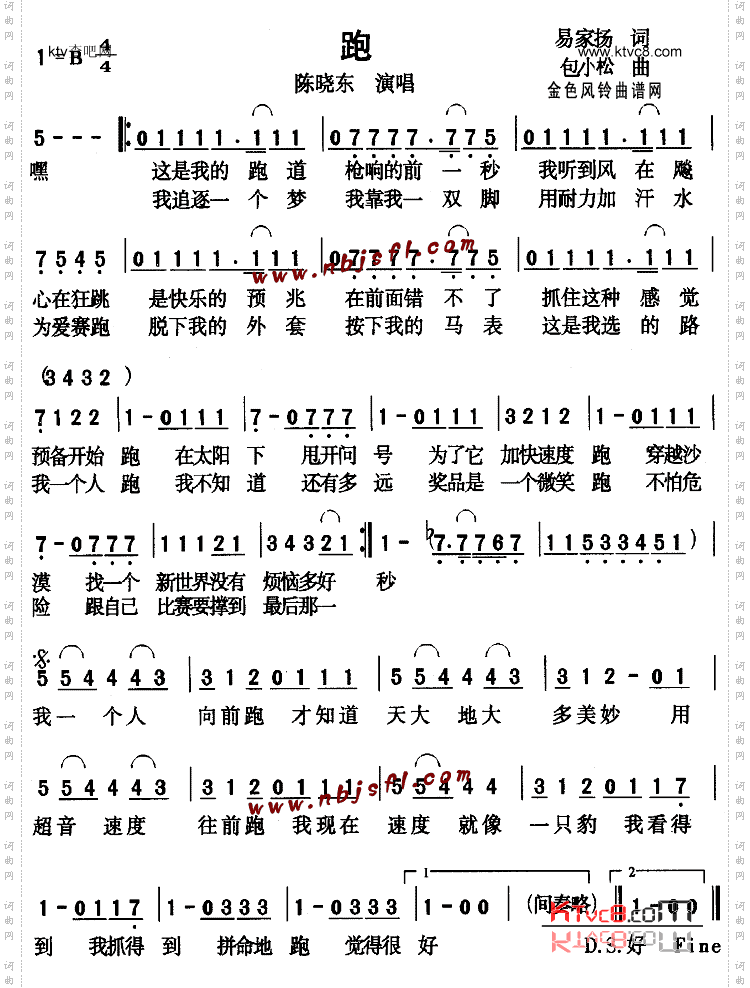 跑
易家扬 词
ktv查吧网
www.ktvc8.com
1=B 4/4
包小松 曲
陈晓东 演唱
金色风铃曲谱网
5 - - - ‖: 0 1 1 1 1 . 1 1 1 | 0 7 7 7 7 . 7 7 5 | 0 1 1 1 1 . 1 1 1 |
嘿 这是我的 跑 道 枪响的前 一 秒 我听到风 在 飚
我追逐一 个 梦 我靠我一 双 脚 用耐力加 汗 水
7 5 4 5 | 0 1 1 1 1 . 1 1 1 | 0 7 7 7 7 . 7 7 5 | 0 1 1 1 1 . 1 1 1 |
www.nbjsfl.com
心在狂跳 是快乐的 预 兆 在前面错 不 了 抓住这种 感 觉
为爱赛跑 脱下我的 外 套 按下我的 马 表 这是我选 的 路
(3 4 3 2 )
7 1 2 2 | 1 - 0 1 1 1 | 7 - 0 7 7 7 | 1 - 0 1 1 1 | 3 2 1 2 | 1 - 0 1 1 1 |
预备开始 跑 在太阳 下 甩开问 号 为了它 加快速度 跑 穿越沙
我一个人 跑 我不知 道 还有多 远 奖品是 一个微笑 跑 不怕危
7 - 0 7 7 7 | 1 1 1 2 1 | 3 4 3 2 1 :‖ 1 - (♭7. 7 7 6 7 | 1 1 5 3 3 4 5 1 ) |
漠 找一个 新世界没有 烦恼多好 秒
险 跟自己 比赛要撑到 最后那一
5 5 4 4 4 3 | 3 1 2 0 1 1 1 | 5 5 4 4 4 3 | 3 1 2 - 0 1 |
我一 个人 向前跑 才知道 天大 地大 多美妙 用
5 5 4 4 4 3 | 3 1 2 0 1 1 1 | 5 5 4 4 4 3 | 3 1 2 0 1 1 7 |
www.nbjsfl.com
超音 速度 往前跑 我现在 速度 就像 一只豹 我看得
1 2
1 - 0 1 1 7 | 1 - 0 3 3 3 | 1 - 0 3 3 3 | 1 - 0 0 | (间奏略) ‖ 1 - 0 0 ‖
Ktvc8.com
到 我抓得 到 拼命地 跑 觉得很 好 D.S.好 Fine
词曲网